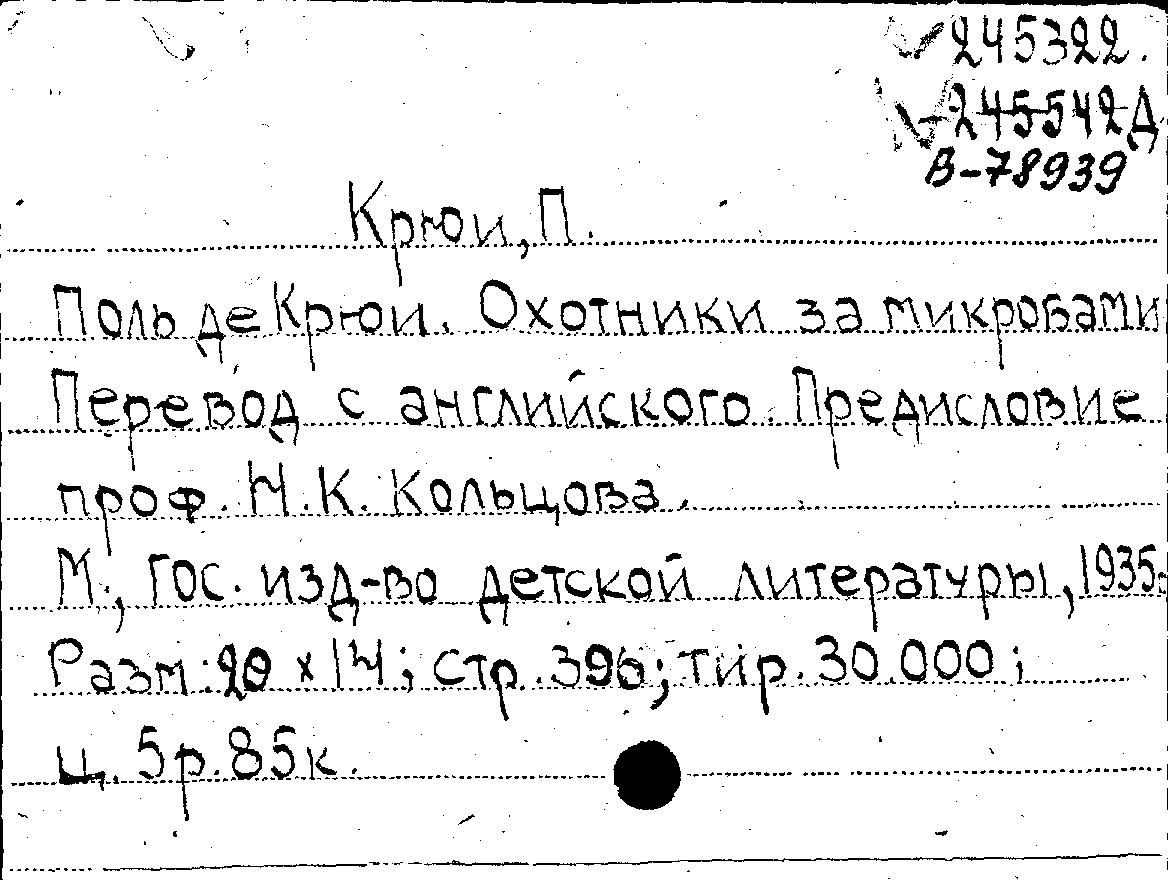 245322.
245542Д
В-78939
Крюи, П.
Поль де Крюи. Охотники за микробами
Перевод с английского. Предисловие
проф. Н.К. Кольцова.
М., Гос. изд-во детской литературы, 1935.
Разм: 20 x 14; стр. 396; тир. 30.000;
ц. 5р. 85к.